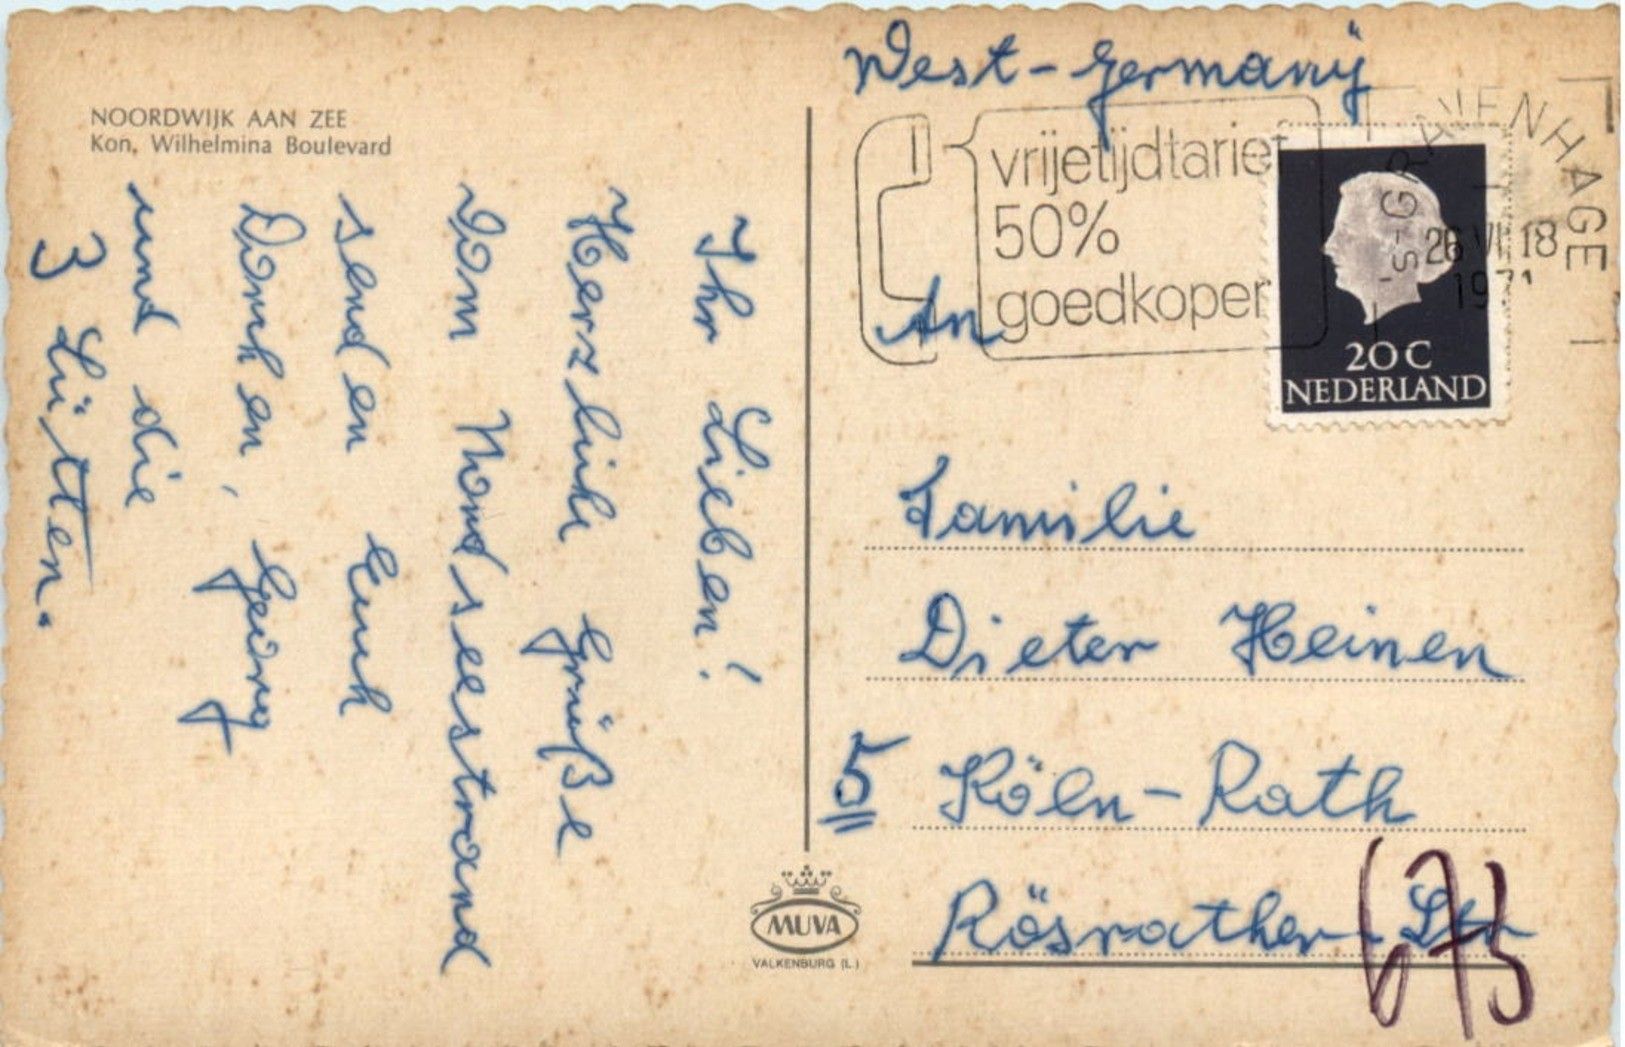 NOORDWIJK AAN ZEE
Kon. Wilhelmina Boulevard
Ihr Lieben!
Herzliche Grüße
vom Nordseestrand
senden Euch
Dorchen, Georg
und die
3 Lütten.
MUVA
VALKENBURG (L.)
West-Germany
vrijetijdtarief
50%
goedkoper
's-GRAVENHAGE
26 VI 18
1971
20 C
NEDERLAND
An
Familie
Dieter Heinen
5 Köln-Rath
Rösrather-Str
673